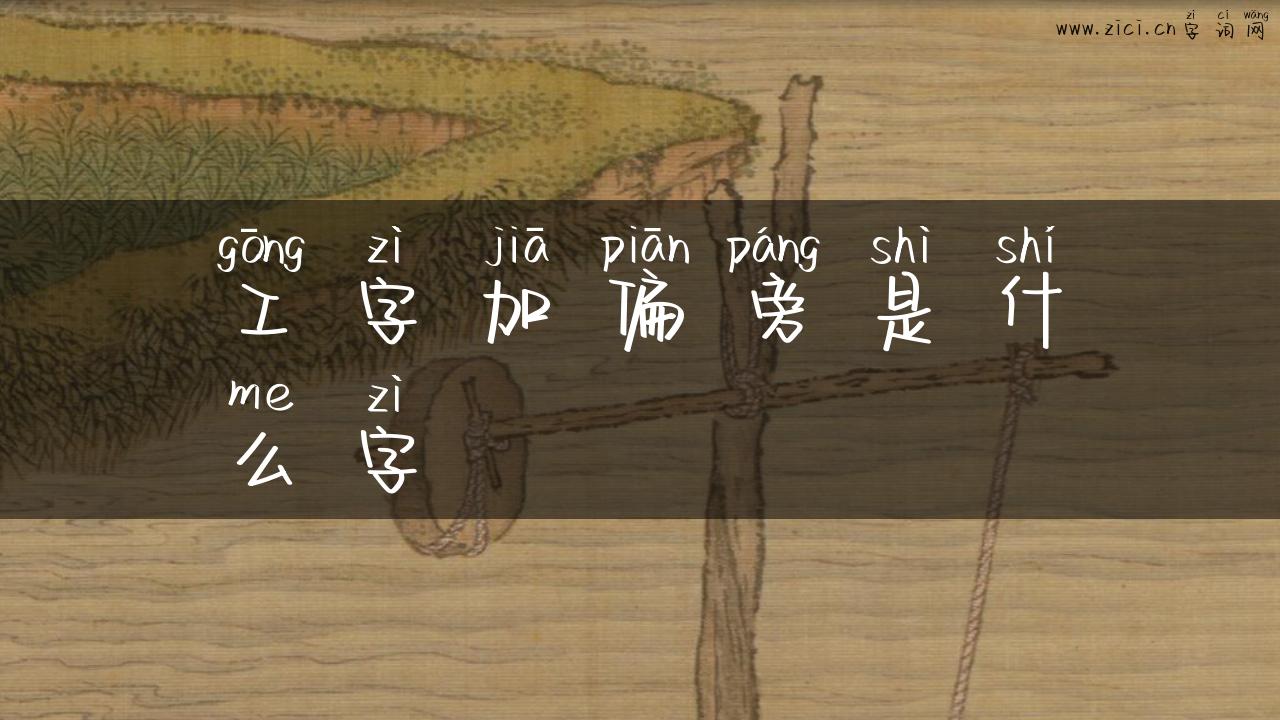 zì cí wǎng
www.zici.cn字词网
gōng zì jiā piān páng shì shí
工字加偏旁是什
me zì
么字